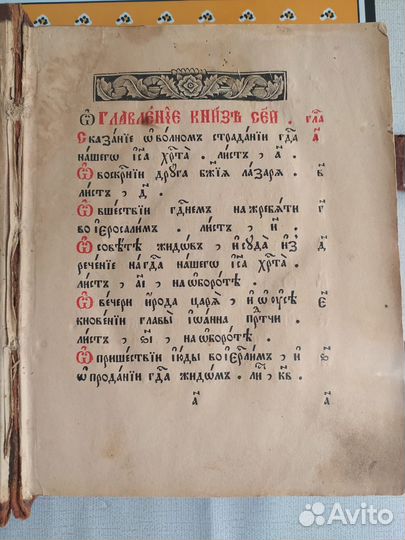 Ѡ҆главле́нїе кни́зѣ се́й . гла̑
Сказа́нїе ѡ҆ во́лномъ страда́нїи гд҇а а҃
на́шегѡ і҆и҃са хр҇та̀ . ли́стъ , а҃ .
Ѡ҆ воскр҇нїи дру́га бж҃їѧ ла́зарѧ в҃
ли́стъ , д҃ .
Ѡ҆ вше́ствїи гд҇немъ на жребѧ́ти г҃
во і҆ерⷭ҇али́мъ . ли́стъ , и҃ .
Ѡ҆ совѣ́тѣ жидо́въ , и҆ суда̀ и҆з д҃
рече́нїе на гд҇а на́шего і҆и҃са хр҇та̀ .
ли́стъ , а҃і , на ѡ҆боро́тѣ
Ѡ҆ ве́чери и҆́рода царѧ̀ , и҆ ѡ҆ ᲂу҆сѣ є҃
кнове́нїи главы̀ і҆ѡа́нна пр҇тчи
ли́стъ , ѕ҃і , на ѡ҆боро́тѣ
Ѡ҆ прише́ствїи і҆ю́ды во і҆ер҇ли́мъ , и҆ ѕ҃
ѡ҆ прода́нїи гд҇а жидо́мъ . ли̑ , к҃в
а҃ а҃
Avito